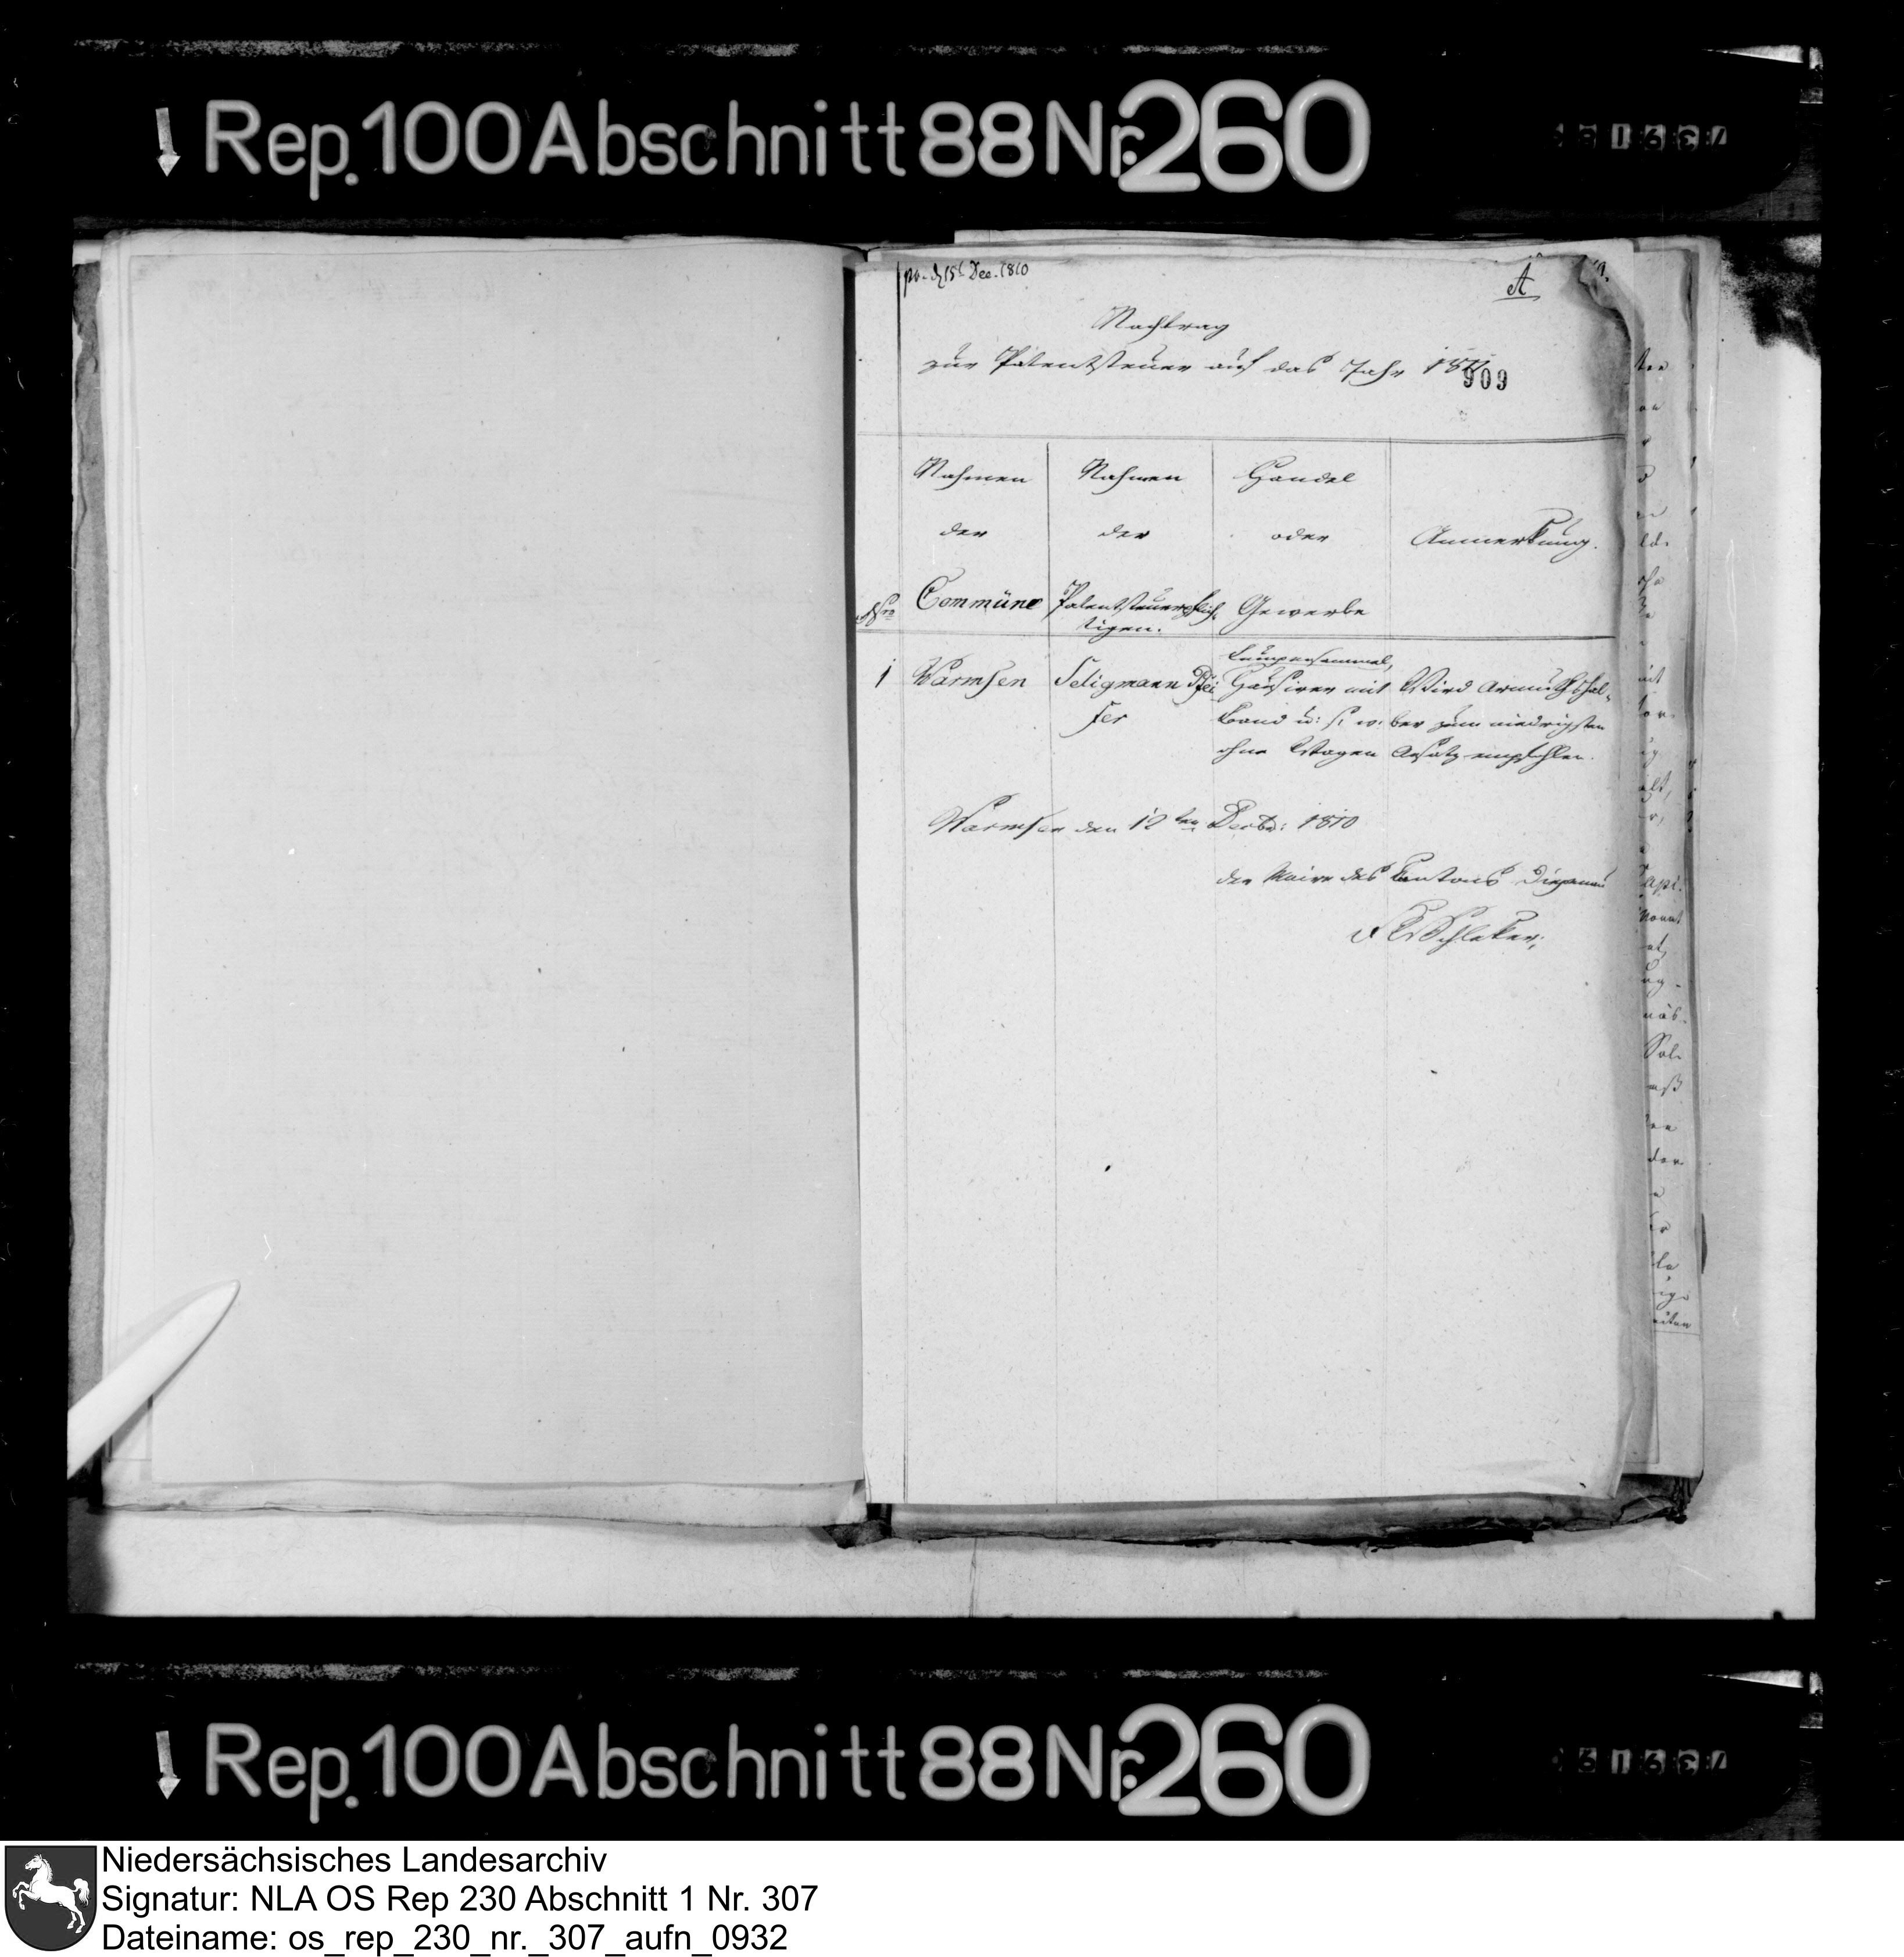 Rep. 100 Abschnitt 88 Nr. 260
pr. d 15t Dec. 1810
A
Nachtrag
zur Patentsteuer auf das Jahr 1811
909
Nro
Nahmen
der
Commüne
Nahmen
der
Patentsteuerpflich
tigen.
Handel
oder
Gewerbe
Anmerkung.
1
Warmsen
Seligmann
ser
Lumpensammel,
Hausirer mit
Band u: s. w.
ohne Wagen
Wird Armuthshal-
ber zum niedrigsten
Ansatz empfohlen.
Warmsen den 12ten Decbr: 1810
der Maire des Cantons Diepenau
Rep. 100 Abschnitt 88 Nr. 260
Niedersächsisches Landesarchiv
Signatur: NLA OS Rep 230 Abschnitt 1 Nr. 307
Dateiname: os_rep_230_nr._307_aufn_0932